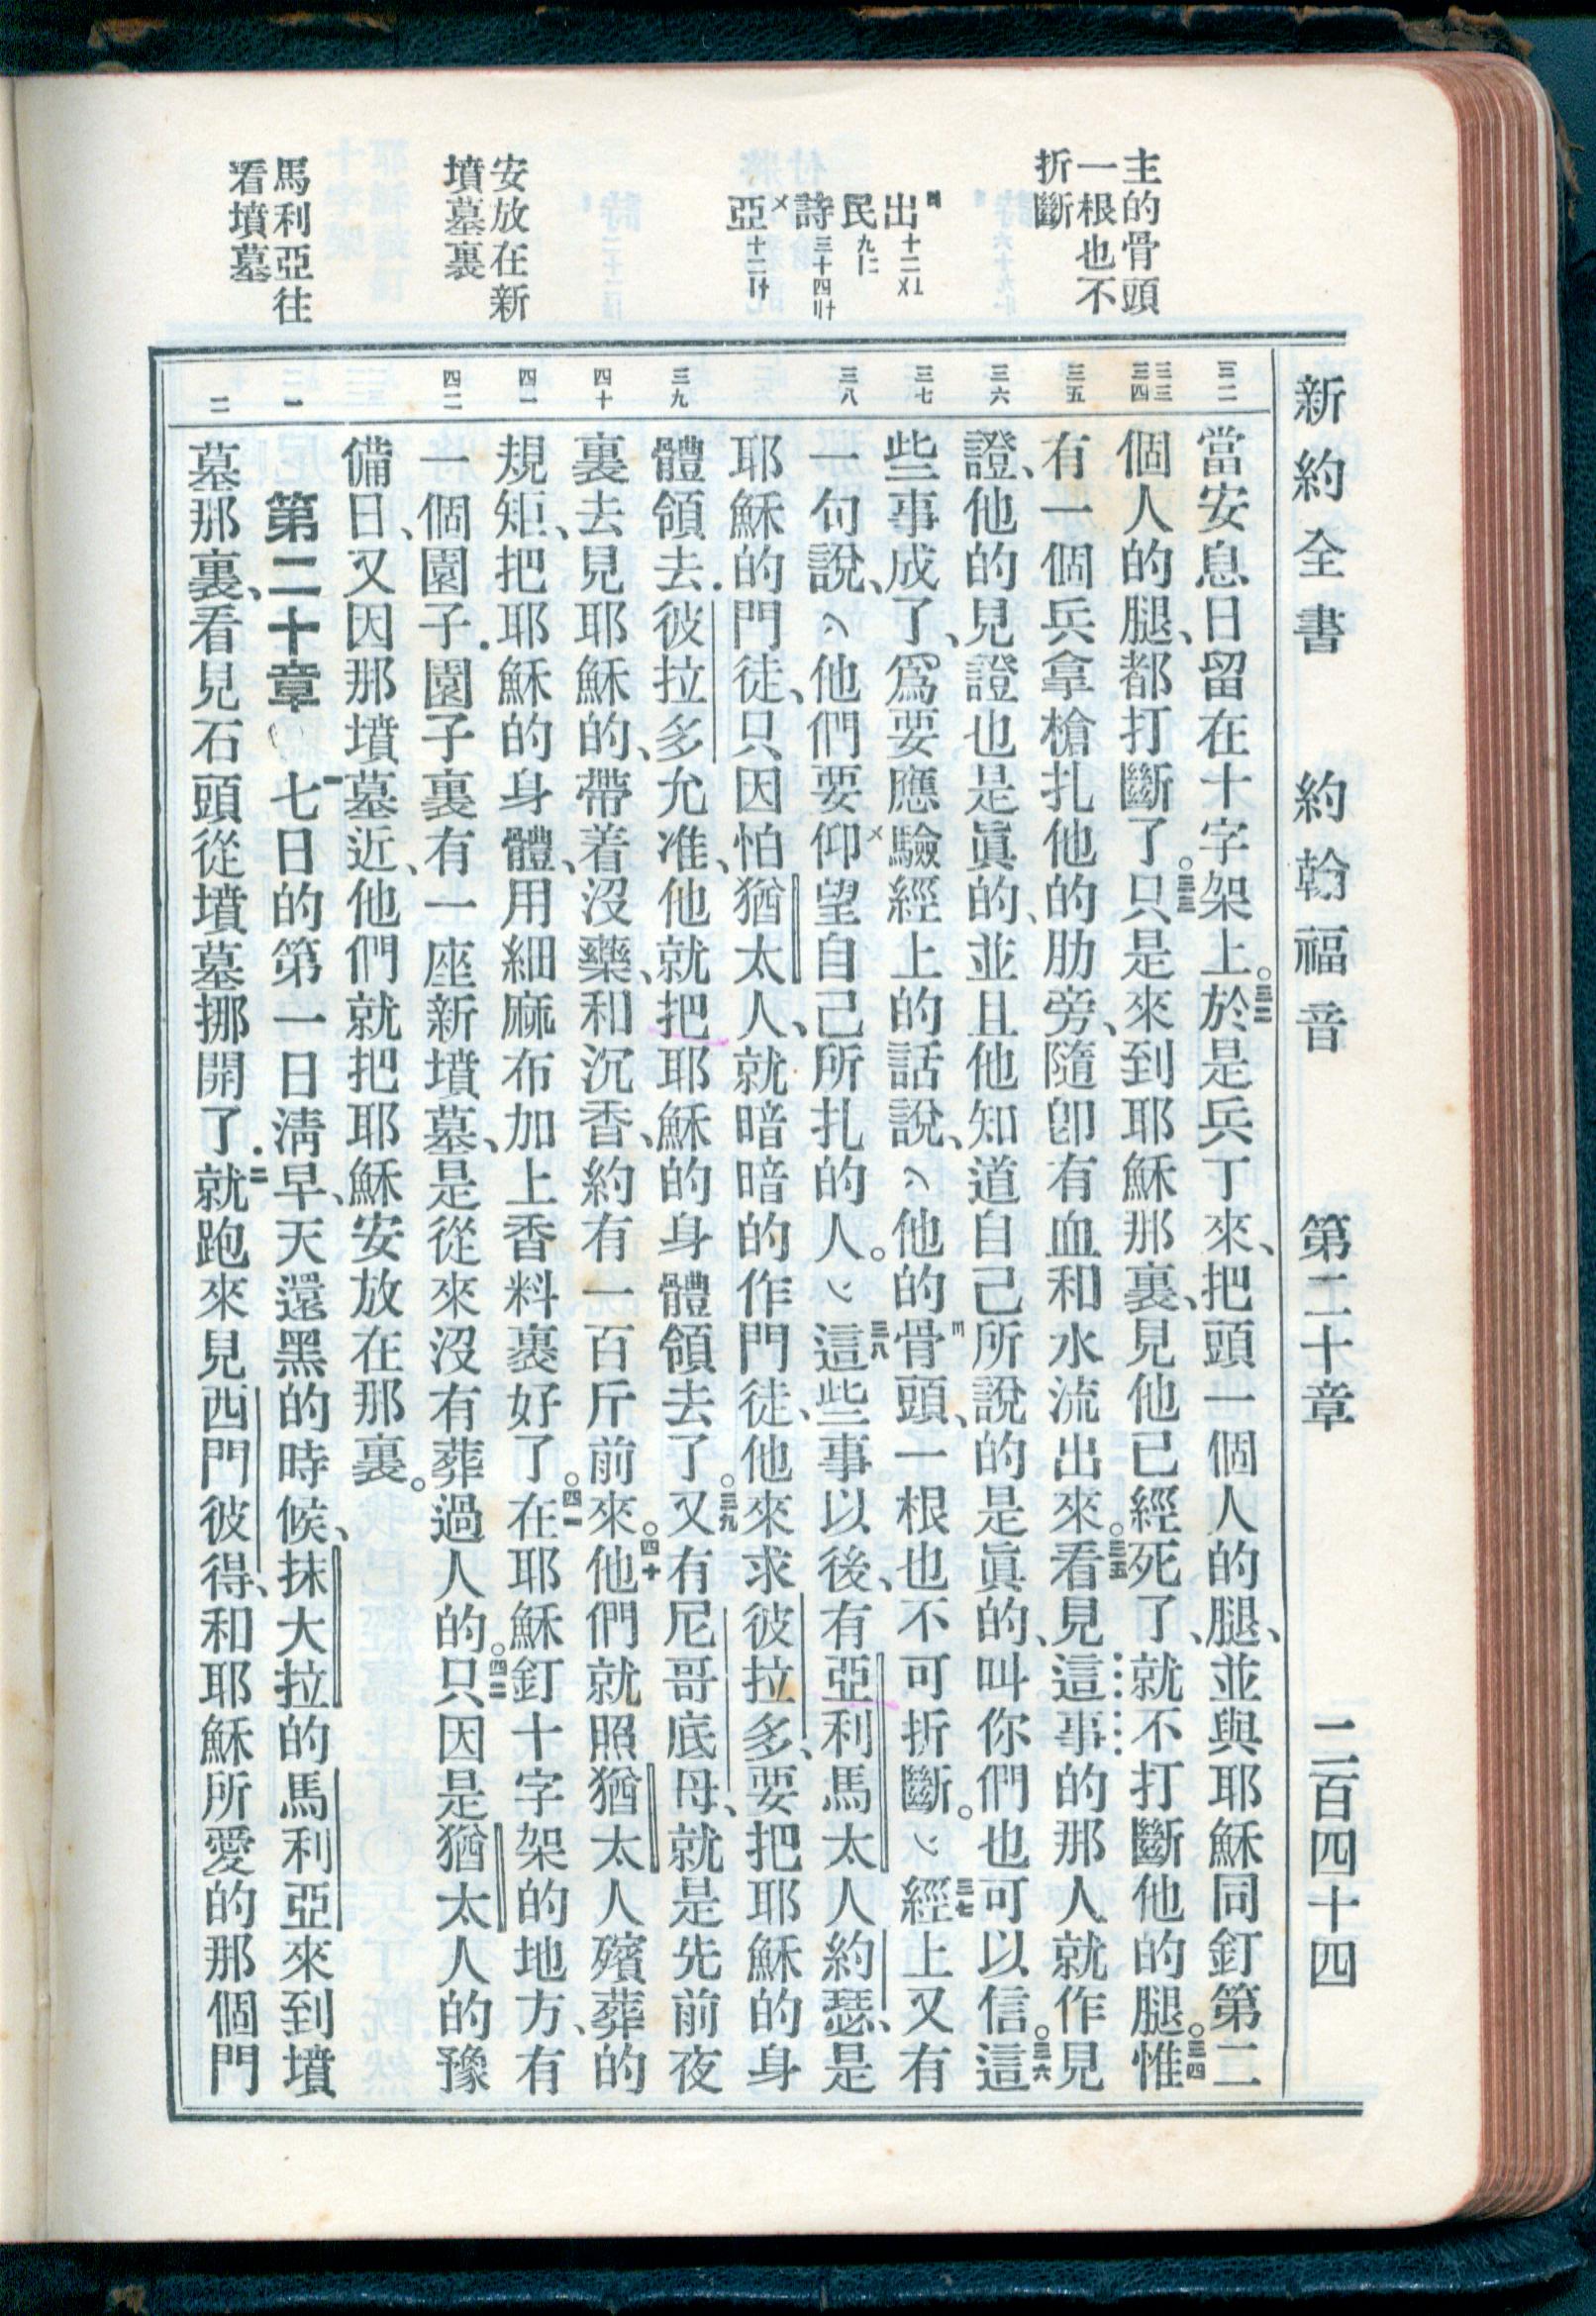 新約全書 約翰福音 第二十章 二百四十四
主的骨頭
一根也不
折斷
出十二〤〦
民九〧
詩三十四〢十
亞十二〸
安放在新
墳墓裏
馬利亞往
看墳墓
三二
三三
三四
三五
三六
三七
三八
三九
四十
四一
四二
二十一
二
當安息日留在十字架上。三二於是兵丁來、把頭一個人的腿、並與耶穌同釘第二
個人的腿、都打斷了。三三只是來到耶穌那裏、見他已經死了、就不打斷他的腿。三四惟
有一個兵拿槍扎他的肋旁、隨卽有血和水流出來。三五看見這事的那人就作見
證、他的見證也是眞的、並且他知道自己所說的是眞的、叫你們也可以信。三六這
些事成了、爲要應驗經上的話說、〵他的骨頭、一根也不可折斷。〵三七經上又有
一句說、〵他們要仰望自己所扎的人。〵三八這些事以後、有亞利馬太人約瑟、是
耶穌的門徒、只因怕猶太人、就暗暗的作門徒、他來求彼拉多、要把耶穌的身
體領去．彼拉多允准、他就把耶穌的身體領去了。三九又有尼哥底母、就是先前夜
裏去見耶穌的、帶着沒藥、和沉香、約有一百斤前來。四十他們就照猶太人殯葬的
規矩、把耶穌的身體、用細麻布加上香料裹好了。四一在耶穌釘十字架的地方、有
一個園子．園子裏有一座新墳墓、是從來沒有葬過人的。四二只因是猶太人的豫
備日、又因那墳墓近、他們就把耶穌安放在那裏。
第二十章 一七日的第一日淸早、天還黑的時候、抹大拉的馬利亞來到墳
墓那裏、看見石頭從墳墓挪開了．二就跑來見西門彼得、和耶穌所愛的那個門